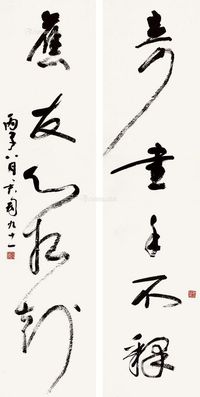 奇書手不釋
舊友心相
丙子八月九十一